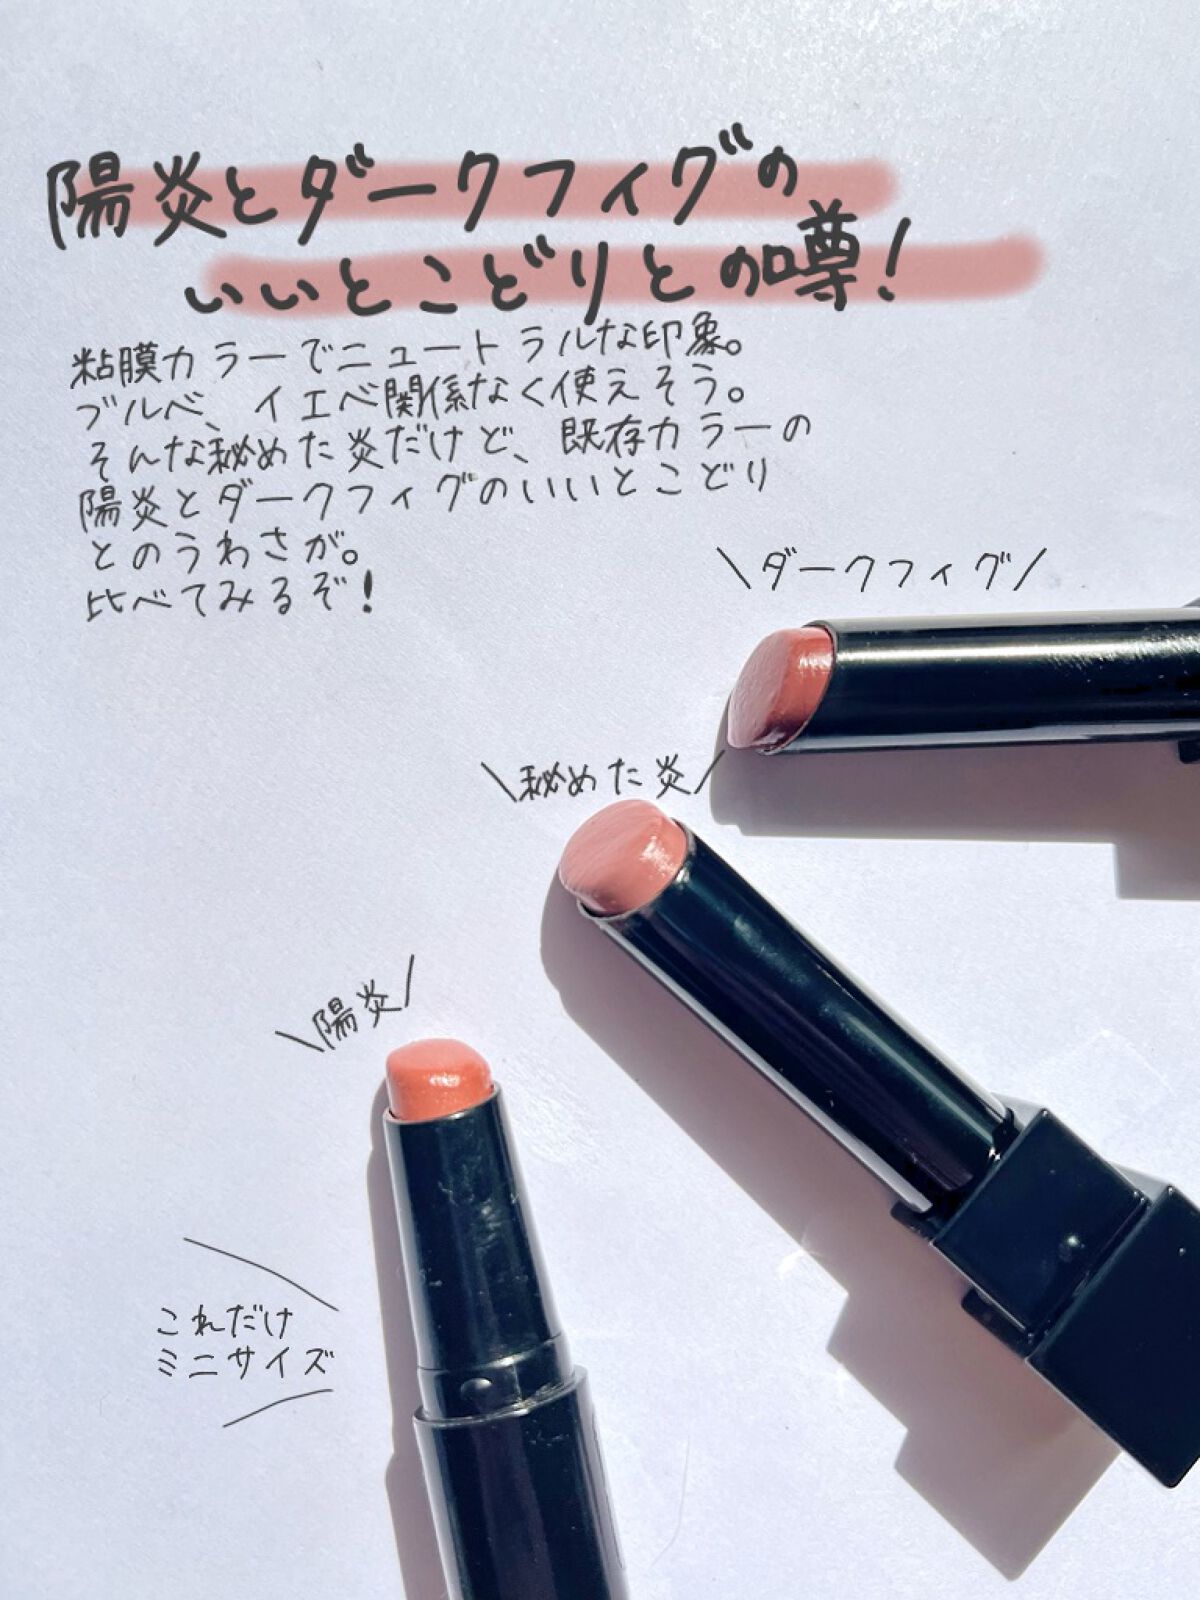 陽炎とダークフィグの
いいとこどりとの噂！
粘膜カラーでニュートラルな印象。
ブルベ、イエベ関係なく使えそう。
そんな秘めた炎だけど、既存カラーの
陽炎とダークフィグのいいとこどり
とのうわさが。
比べてみるぞ！
\ダークフィグ/
\秘めた炎/
\陽炎/
これだけ
ミニサイズ